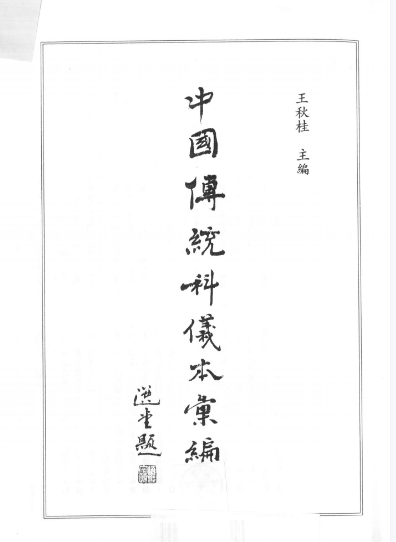 王秋桂 主編
中國傳統科儀本彙編
選堂題